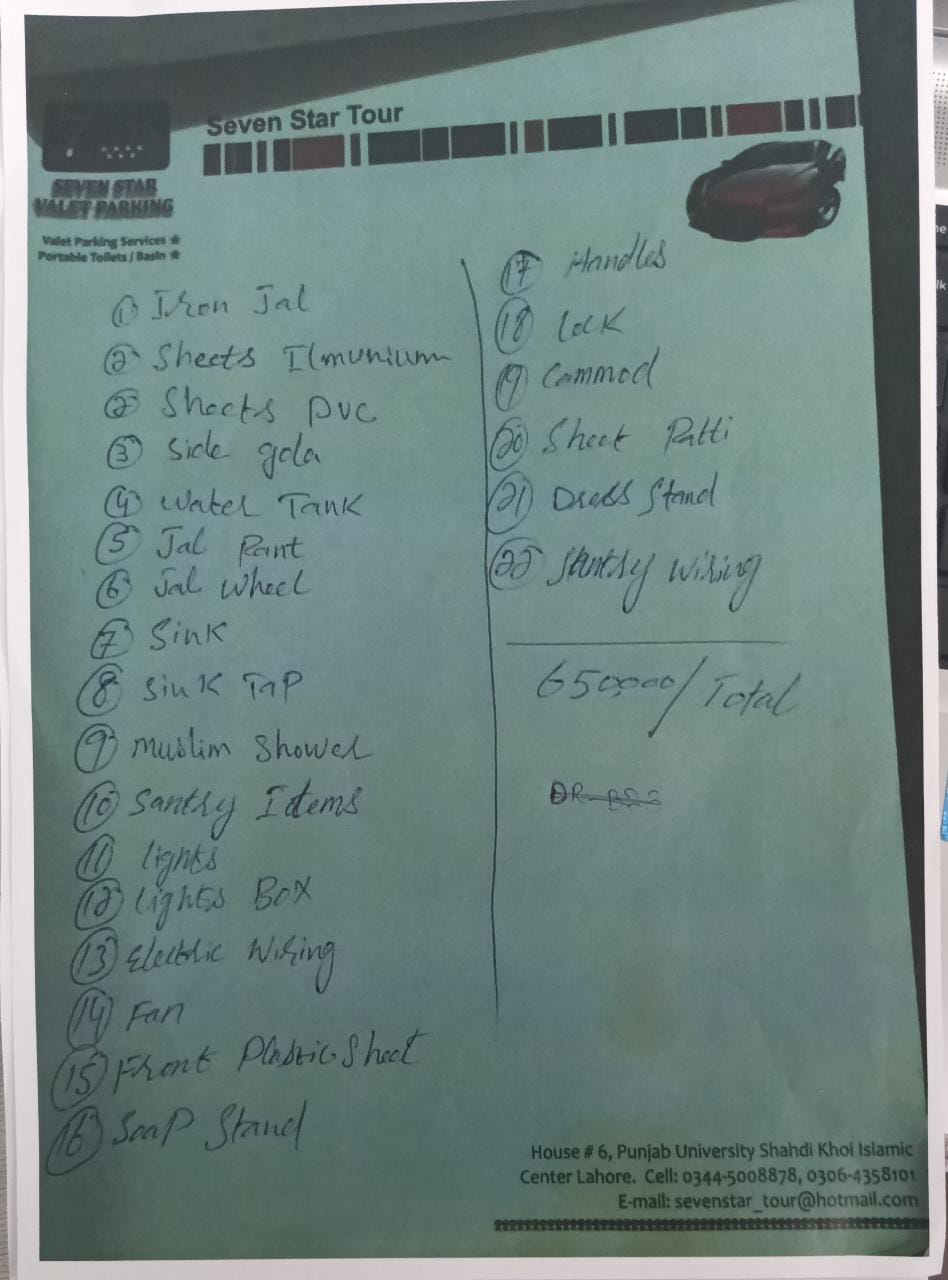 Seven Star Tour
SEVEN STAR
VALET PARKING
Valet Parking Services ★
Portable Toilets / Basin ★
① Iron Jal
② Sheets Ilmunium
② Sheets PVC
③ Side gola
④ Water Tank
⑤ Jal Pant
⑥ Jal Wheel
⑦ Sink
⑧ Sink TaP
⑨ Muslim Shower
⑩ Santry Items
⑪ lights
⑫ lights BOX
⑬ Electric Wiring
⑭ Fan
⑮ Front Plastic Sheet
⑯ SoaP Stand
⑰ Handles
⑱ lock
⑲ Commod
⑳ Sheet Patti
㉑ Dress Stand
㉒ Santry Wiring
650,000/ Total
House # 6, Punjab University Shahdi Khoi Islamic
Center Lahore. Cell: 0344-5008878, 0306-4358101
E-mail: sevenstar_tour@hotmail.com